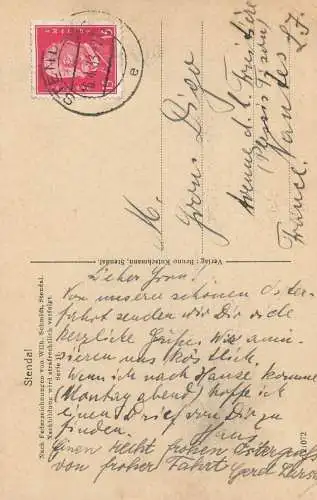 STENDAL
15
15
e
M.
Yvon Digo
avenue d. l.
(Plessis Tison)
Nantes L.I.
France.
Verlag: Bruno Kutschmann, Stendal.
Stendal
Nach Federzeichnungen von Wilh. Schmidt, Stendal.
Nachbildung wird strafrechtlich verfolgt.
Serie
1072
Lieber Yvon!
Von unserer schönen Oster-
fahrt senden wir Dir viele
herzliche Grüße. Wir amü-
sieren uns köstlich.
Wenn ich nach Hause komme
(Montag abend) hoffe ich
einen Brief von Dir zu
finden. Hans
Einen recht frohen Ostergruß
von froher Fahrt Gerd